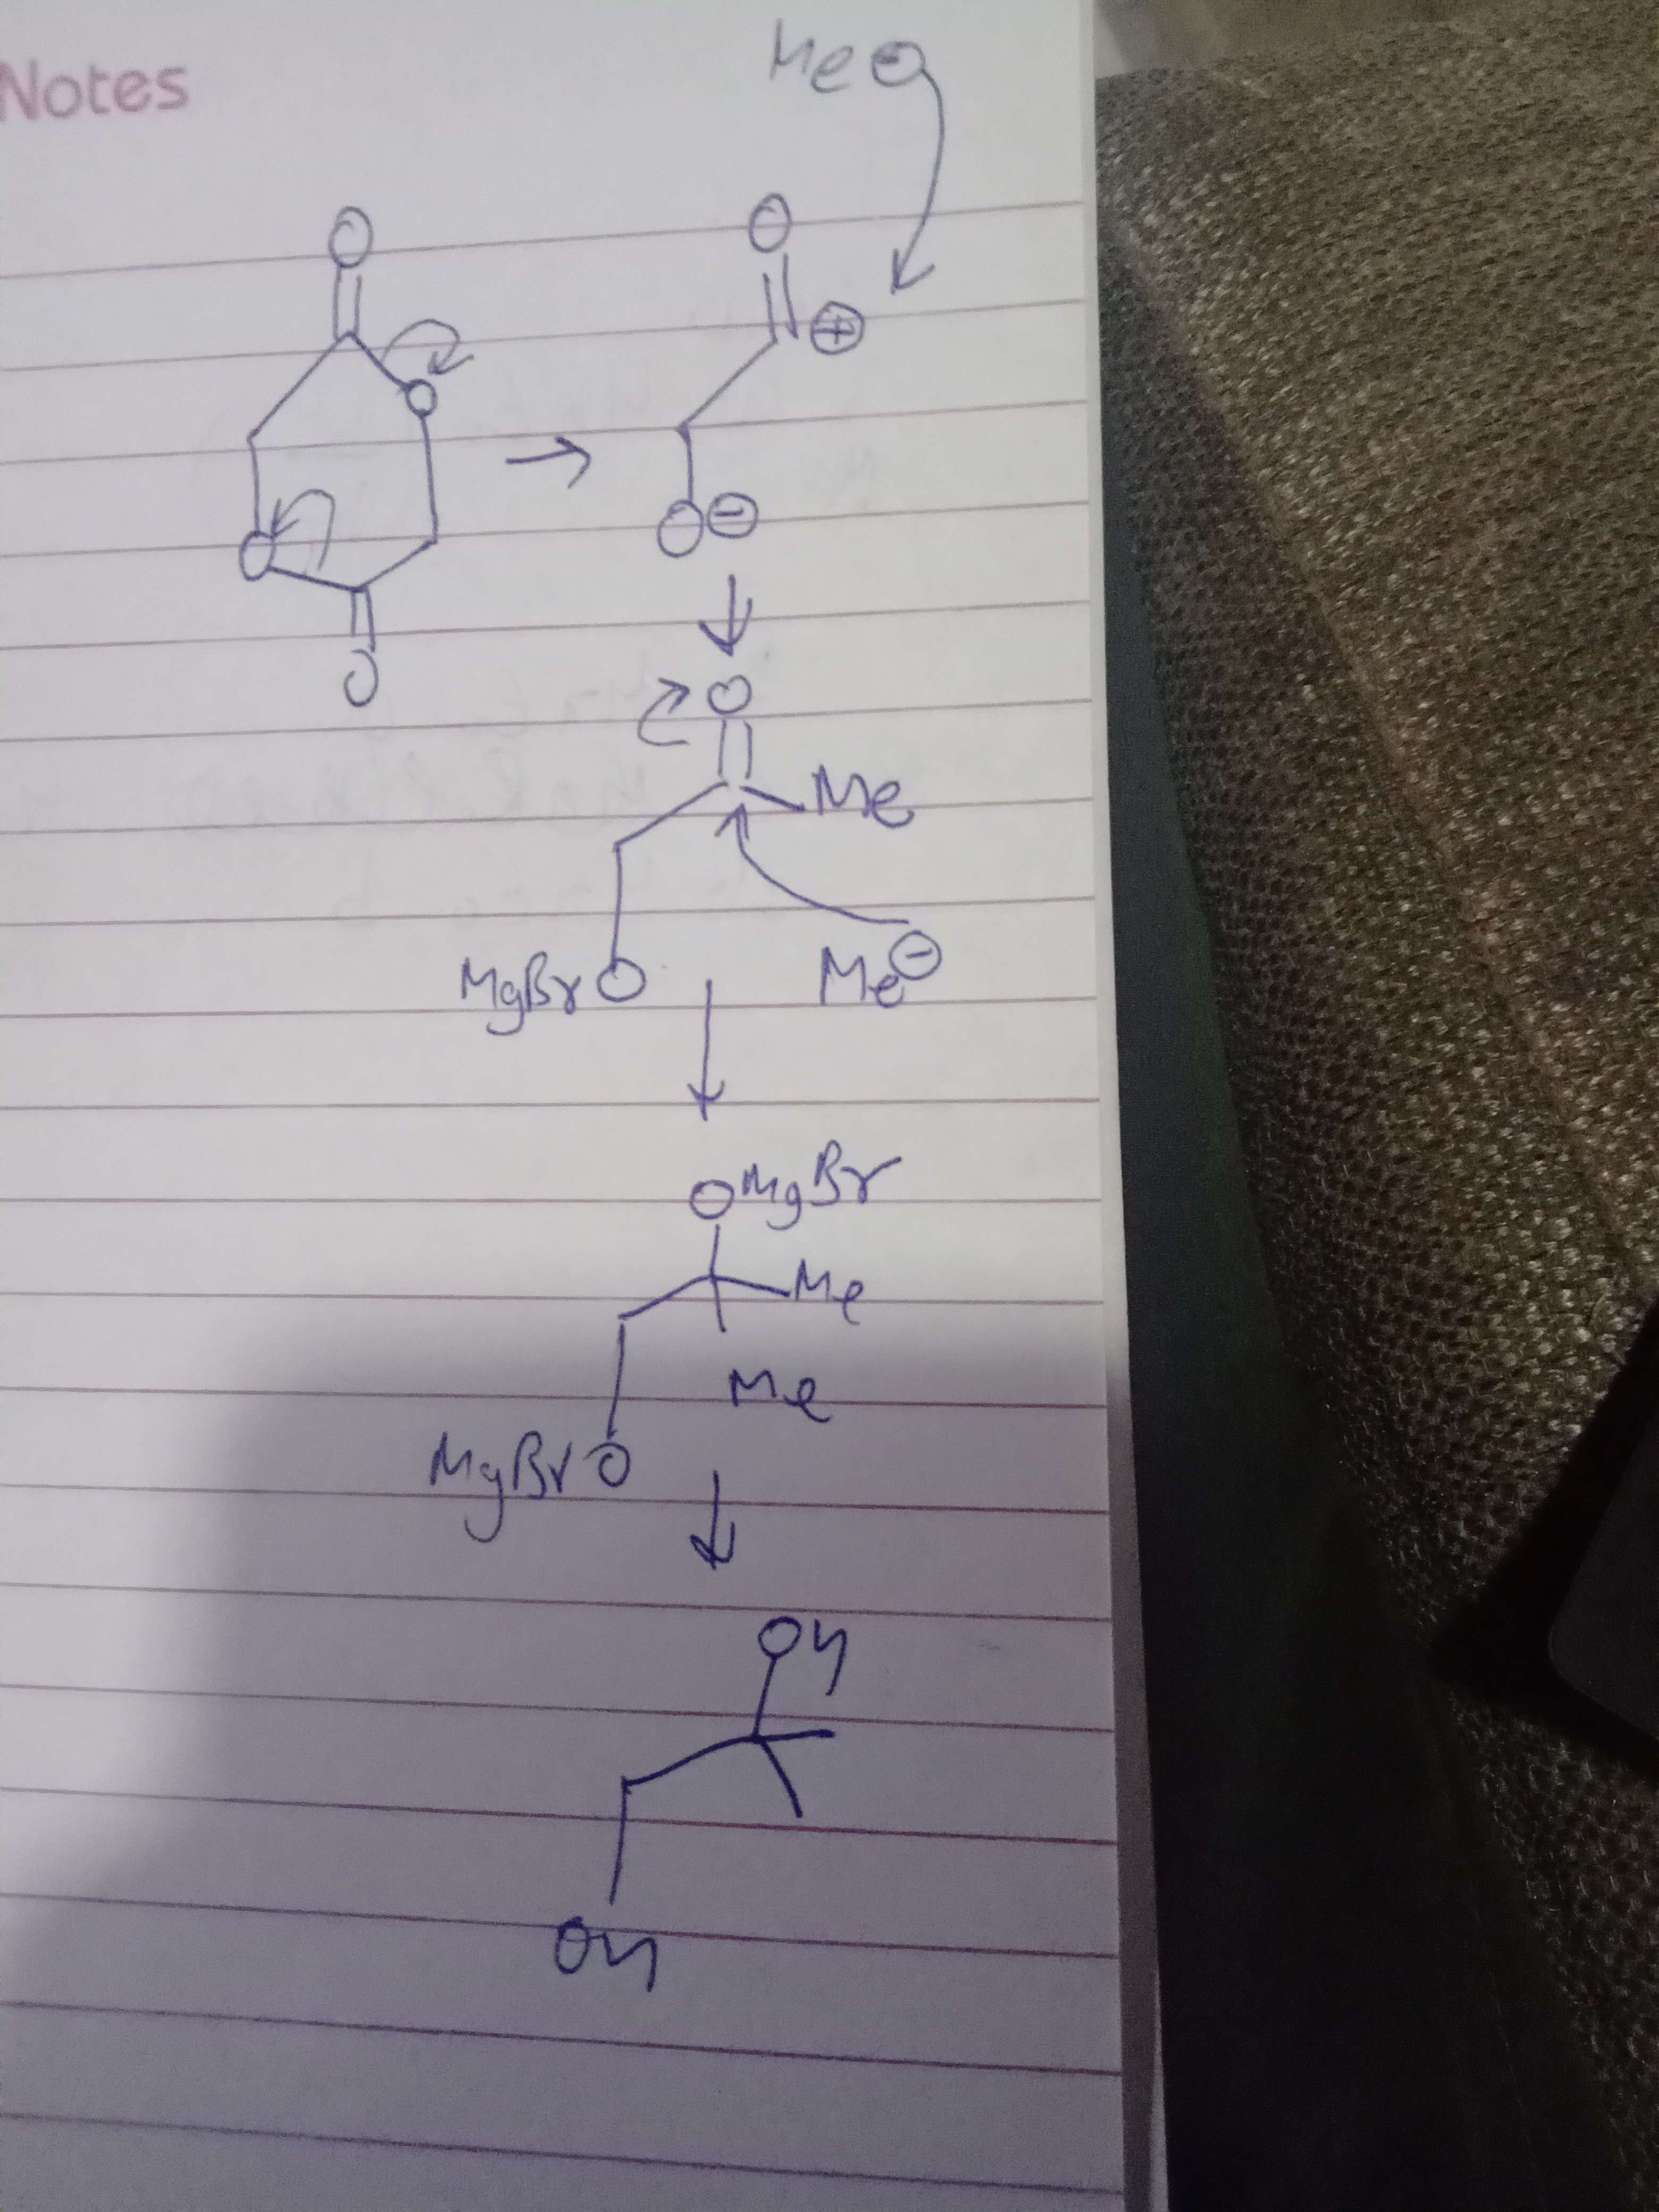 Notes
Me ⊖
O
O
⊕
O
O
O ⊖
O
O
Me
MgBr O
Me ⊖
OMgBr
Me
Me
MgBr O
OH
OH